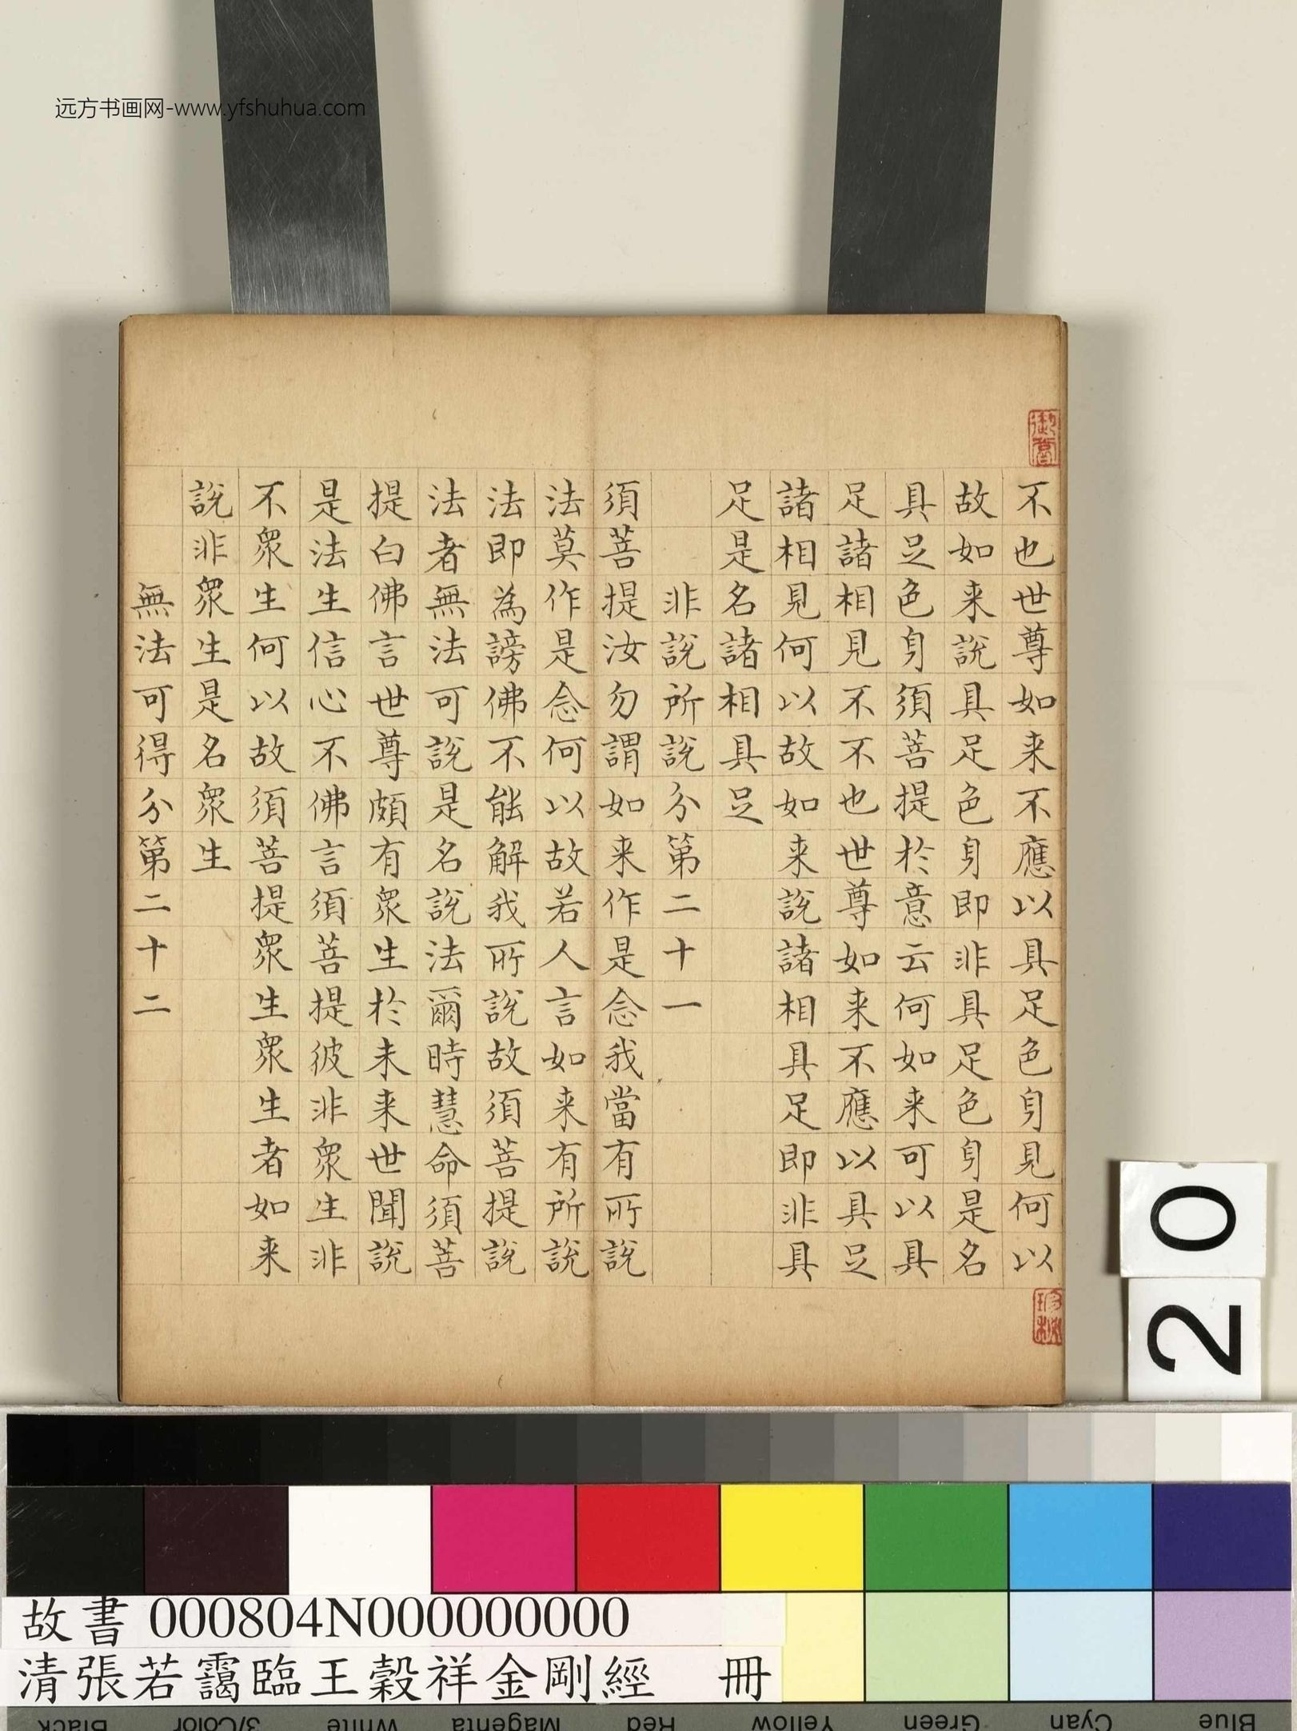 远方书画网-www.yfshuhua.com
不也世尊如来不應以具足色身見何以
故如来說具足色身即非具足色身是名
具足色身須菩提於意云何如来可以具
足諸相見不不也世尊如来不應以具足
諸相見何以故如来說諸相具足即非具
足是名諸相具足
非說所說分第二十一
須菩提汝勿謂如来作是念我當有所說
法莫作是念何以故若人言如来有所說
法即為謗佛不能解我所說故須菩提說
法者無法可說是名說法爾時慧命須菩
提白佛言世尊頗有衆生於未来世聞說
是法生信心不佛言須菩提彼非衆生非
不衆生何以故須菩提衆生衆生者如来
說非衆生是名衆生
無法可得分第二十二
御書
20
故書 000804N000000000
清張若靄臨王穀祥金剛經 冊
Black
3/Color
White
Magenta
Red
Yellow
Green
Cyan
Blue